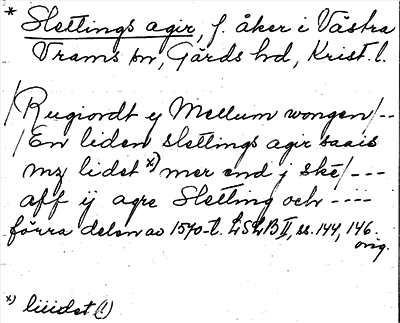 * Slettings agir, f. åker i Västra
Trams sn, Gärds hd, Krist. l.
/Rugiordt ij Mellum wongen/--
/En liden slettings agir saais
mz lidet x) mer end j ske/---
aff ij agre Sletting och ----
förra delen av 1570-t. LSLB II, ss. 144, 146.
orig.
x) liiidet (!)